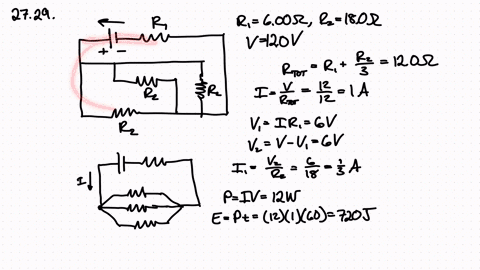 27.29.
R₁
+ -
R₂
R₂
R₂
I
R₁=6.00Ω, R₂=18.0Ω
V=120V
R_TOT = R₁ + R₂/3 = 120Ω
I = V/R_TOT = 12/12 = 1 A
V₁ = IR₁ = 6V
V₂ = V-V₁ = 6V
I₁ = V₂/R₂ = 6/18 = 1/3 A
P=IV=12W
E=Pt=(12)(1)(60)=720J